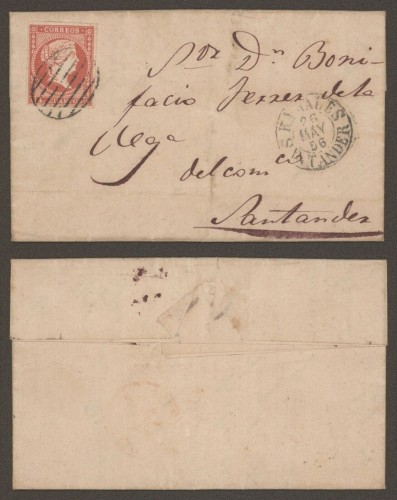 CORREOS
Sor Dn Boni-
facio Ferrer de la
Vega
del comcio
Santander
26
MAY
56
SANTANDER